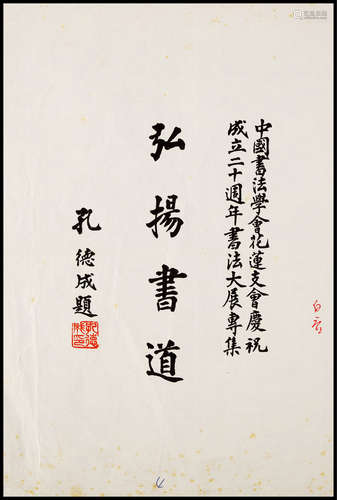 中國書法學會花蓮支會慶祝
成立二十週年書法大展專集
弘揚書道
孔德成題
孔德成印